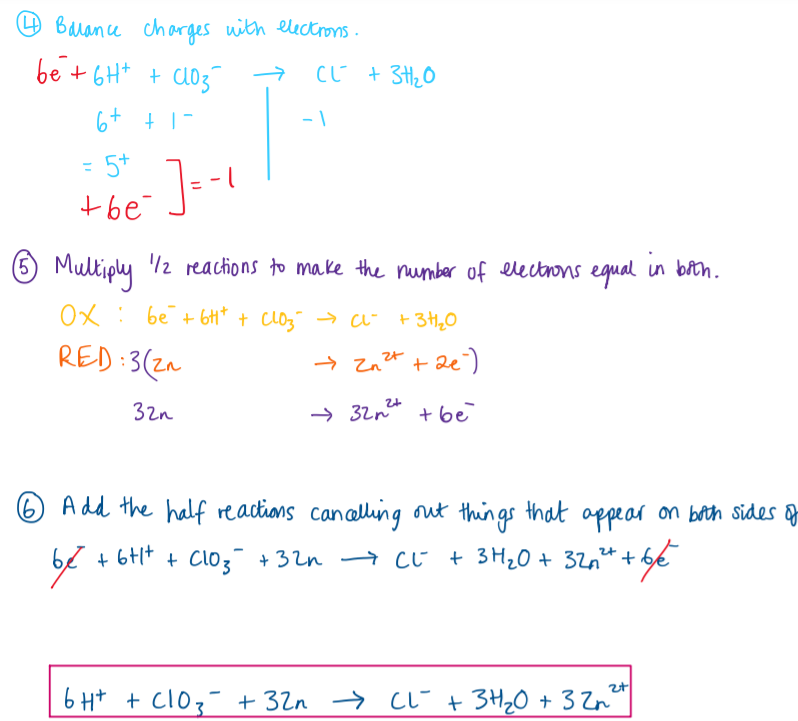 ④ Balance charges with electrons.
6e⁻ + 6H⁺ + ClO₃⁻ → Cl⁻ + 3H₂O
6⁺ + 1⁻ -1
= 5⁺
+6e⁻ ] = -1
⑤ Multiply 1/2 reactions to make the number of electrons equal in both.
OX : 6e⁻ + 6H⁺ + ClO₃⁻ → Cl⁻ + 3H₂O
RED : 3(Zn → Zn²⁺ + 2e⁻)
3Zn → 3Zn²⁺ + 6e⁻
⑥ Add the half reactions cancelling out things that appear on both sides of
6e⁻ + 6H⁺ + ClO₃⁻ + 3Zn → Cl⁻ + 3H₂O + 3Zn²⁺ + 6e⁻
6H⁺ + ClO₃⁻ + 3Zn → Cl⁻ + 3H₂O + 3Zn²⁺